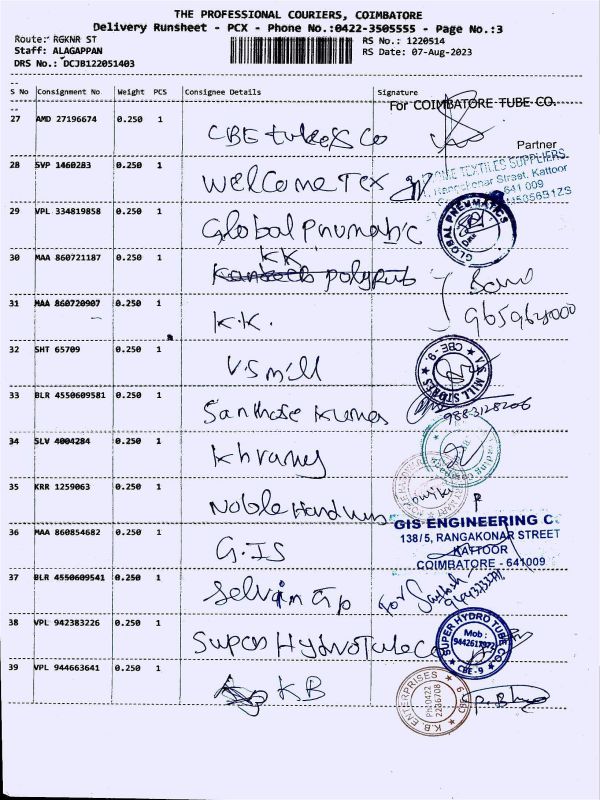 THE PROFESSIONAL COURIERS, COIMBATORE
Delivery Runsheet - PCX - Phone No.:0422-3505555 - Page No.:3
Route: RGKNR ST
RS No.: 1220514
Staff: ALAGAPPAN
RS Date: 07-Aug-2023
DRS No.: DCJB122051403
S No Consignment No Weight PCS Consignee Details Signature
For COIMBATORE TUBE CO.
27 AMD 27196674 0.250 1 CBE tubes Co
Partner
28 SVP 1460283 0.250 1 Welcome Tex
TEXTILES SUPPLIERS.
Rangakonar Street, Kattoor
641 009
29 VPL 334819858 0.250 1 Global Pnumatic
GLOBAL PNEUMATICS
30 MAA 860721187 0.250 1 KK polyfab
31 MAA 860720907 0.250 1 K.K.
32 SHT 65709 0.250 1 V.S mill
V.S. MILL STORES ★ CBE-9. ★
33 BLR 4550609581 0.250 1 Santhose Kumar
34 SLV 4004284 0.250 1
35 KRR 1259063 0.250 1 Noble Hardwares
36 MAA 860854682 0.250 1 G.IS
GIS ENGINEERING C.
138/5, RANGAKONAR STREET
KATTOOR
COIMBATORE - 641009
37 BLR 4550609541 0.250 1 Selvam
38 VPL 942383226 0.250 1 Super Hydro Tube Co
SUPER HYDRO TUBE CO. ★ CBE-9 ★
Mob :
39 VPL 944663641 0.250 1 KB
K.B. ENTERPRISES
Ph:0422
2236708